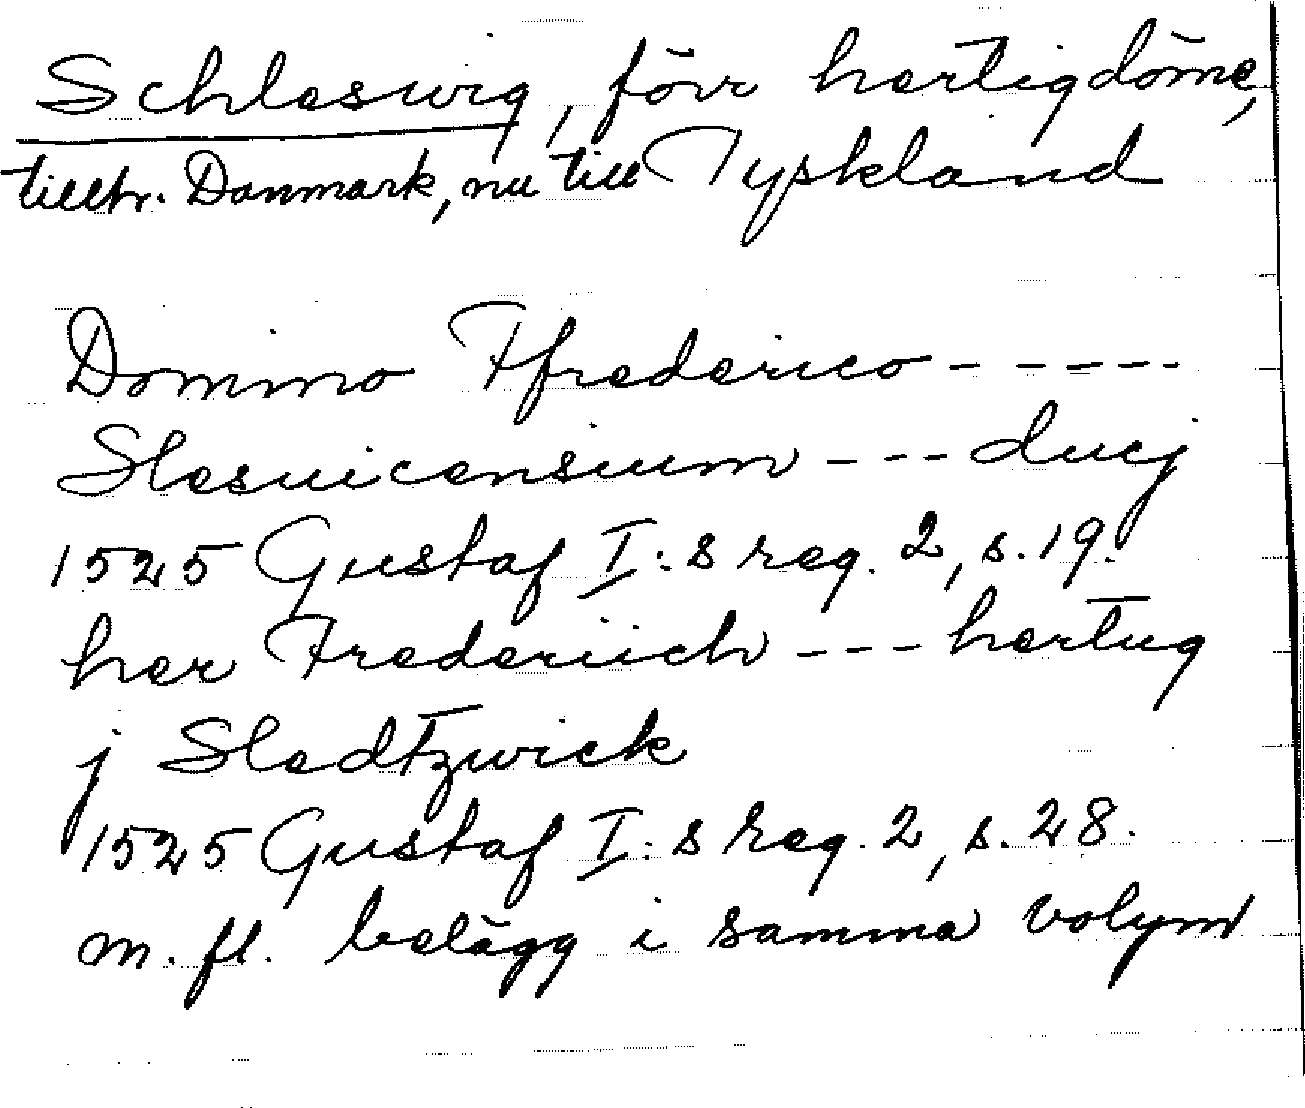 Schleswig, förr hertigdöme,
tillhr. Danmark, nu till Tyskland
Domino Ffrederico - - - - -
Slesuicensium - - - ducj
1525 Gustaf I:s reg. 2, s. 19.
her Frederiich - - - hertug
j Sledtzwick
1525 Gustaf I:s reg. 2, s. 28.
m. fl. belägg i samma volym